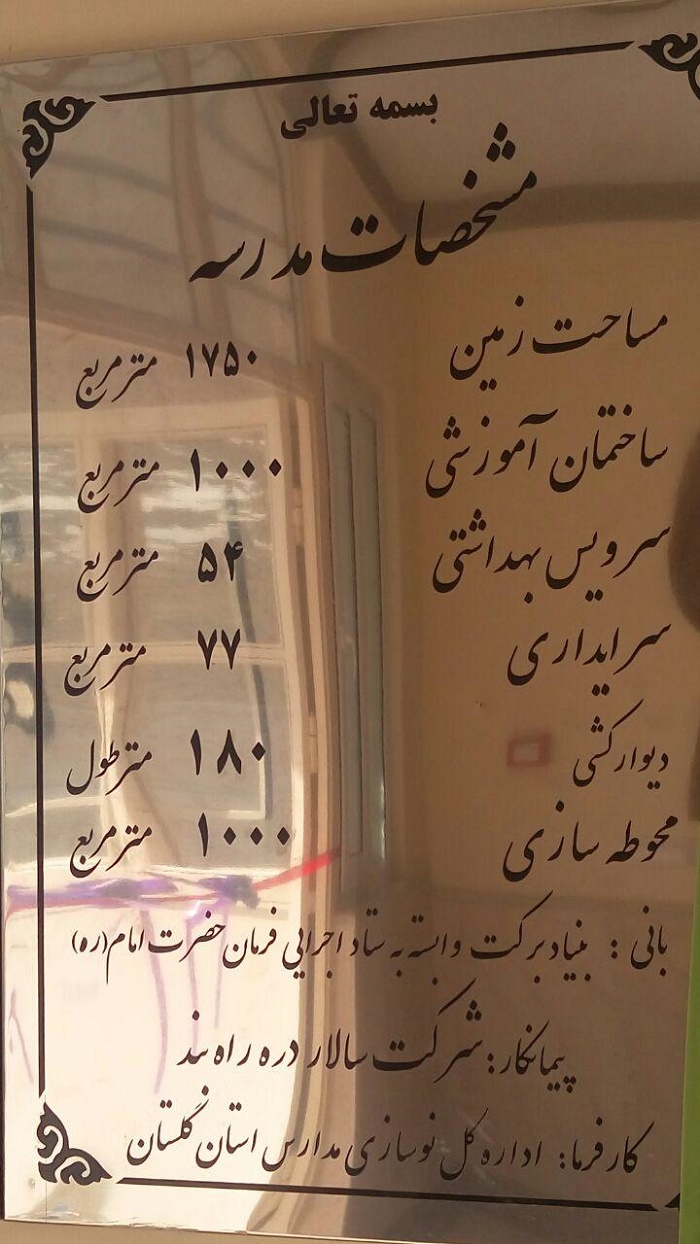 بسمه تعالی
مشخصات مدرسه
مساحت زمین ۱۷۵۰ مترمربع
ساختمان آموزشی ۱۰۰۰ مترمربع
سرویس بهداشتی ۵۴ مترمربع
سرایداری ۷۷ مترمربع
دیوارکشی ۱۸۰ مترطول
محوطه سازی ۱۰۰۰ مترمربع
بانی : بنیاد برکت وابسته به ستاد اجرایی فرمان حضرت امام(ره)
پیمانکار: شرکت سالار دره راه بند
کارفرما: اداره کل نوسازی مدارس استان گلستان